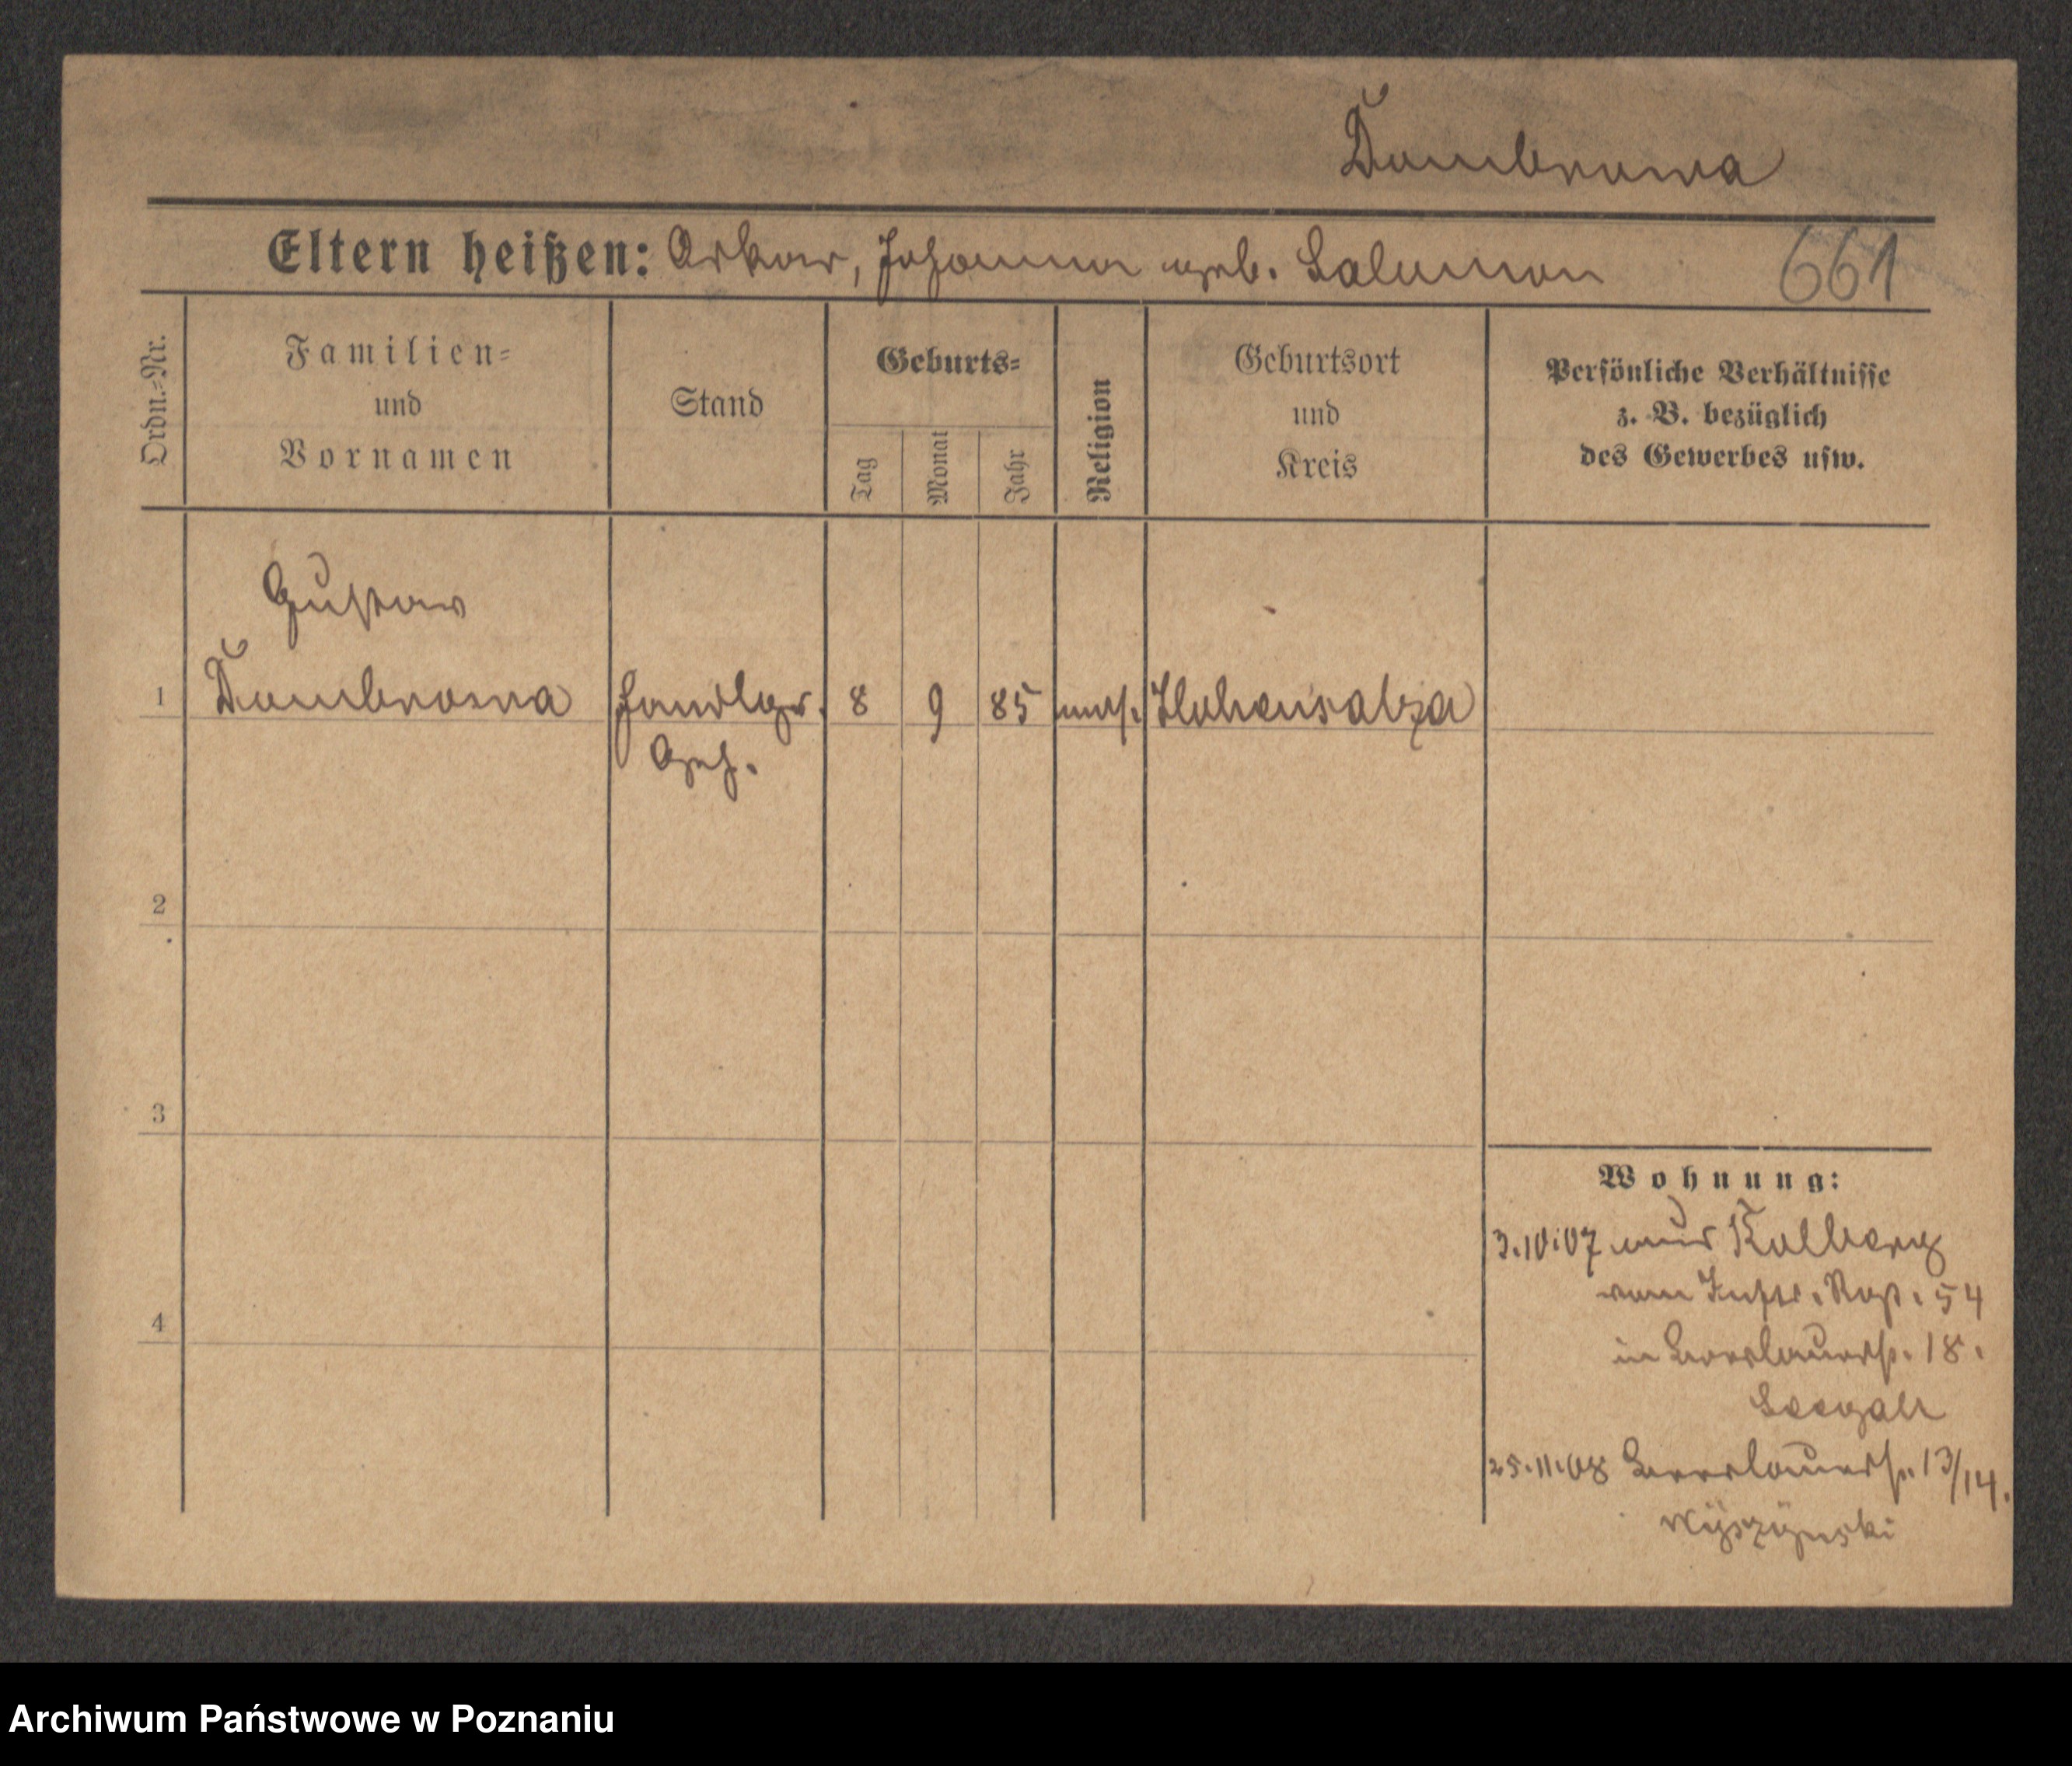 Dombrowa
Eltern heißen: Oskar, Johanna geb. Salomon 661
Ordn.=Nr.
Familien=
und
Vornamen
Stand
Geburts=
Tag
Monat
Jahr
Religion
Geburtsort
und
Kreis
Persönliche Verhältnisse
z. B. bezüglich
des Gewerbes usw.
Gustav
1 Dombrowa Handlgs. 8 9 85 mos. Hohensalza
Geh.
2
3
4
Wohnung:
3.10.07 aus Kolberg
vom Inftr. Rgt. 54
in Breslauerstr. 18.
25.11.08 Breslauerstr. 13/14.
Wyszynski
Archiwum Państwowe w Poznaniu